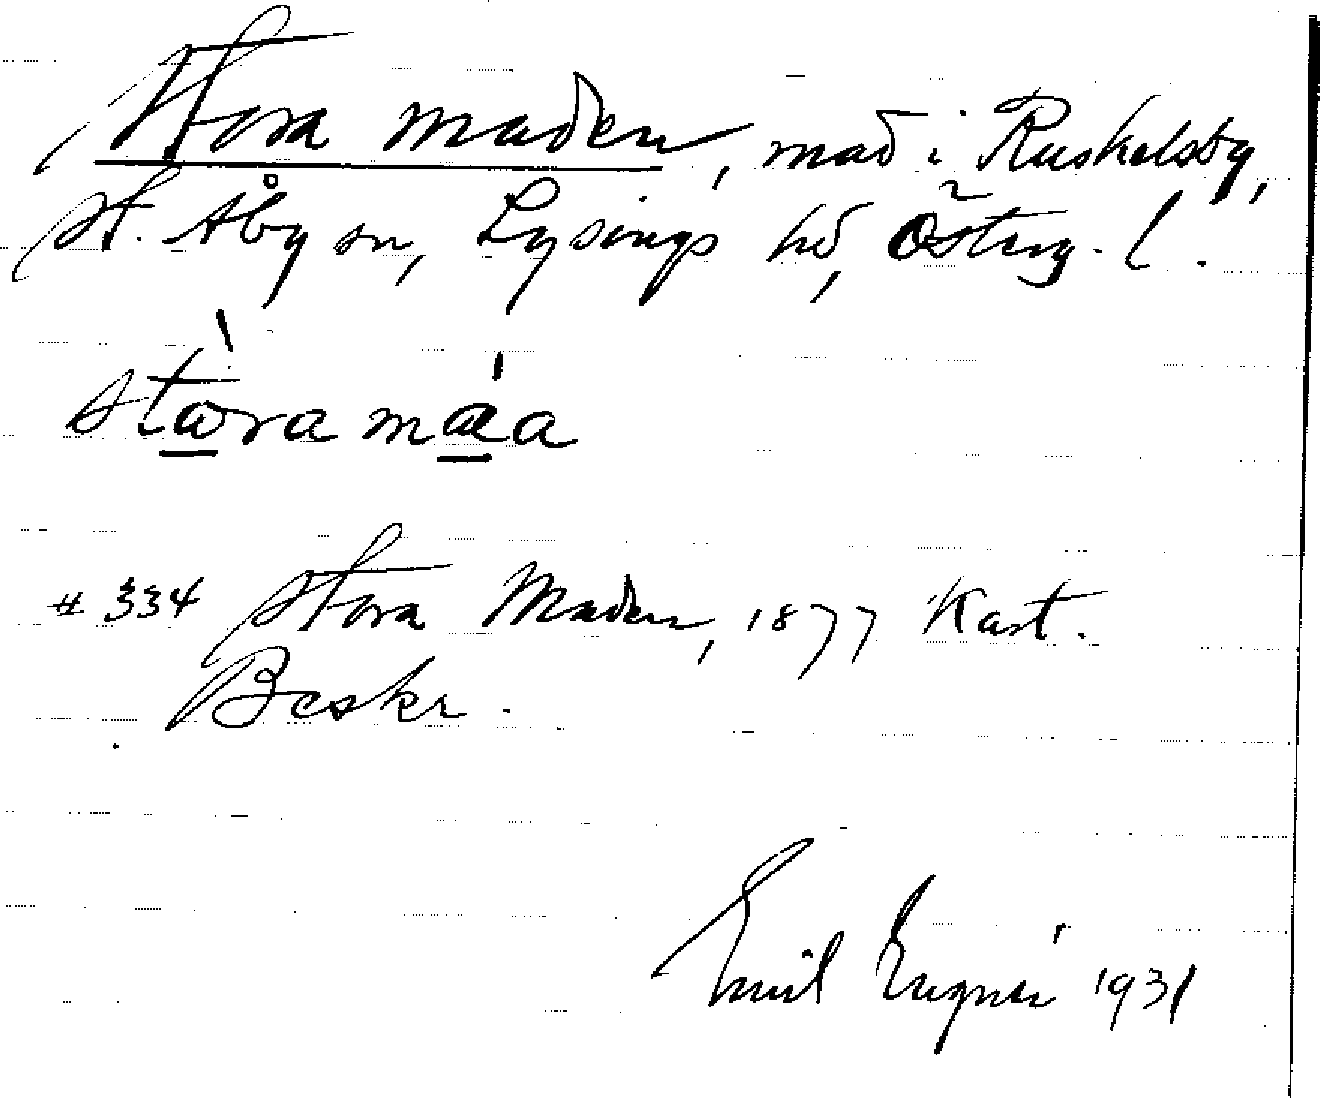 Stora maden, mad i Ruskelsby,
St. Åby sn, Lysings hd, Österg. l.
stωra mææa
# 334 Stora Maden, 1877 Kart.
Beskr.
Emil 1931